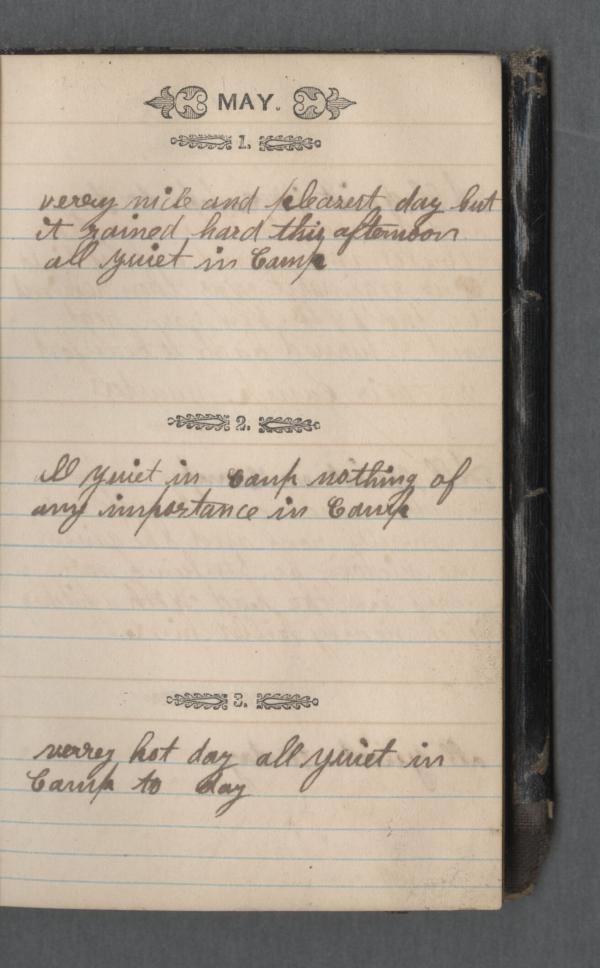 MAY.
1.
verry nice and pleasent day but
it rained hard this afternoon
all quiet in Camp
2.
All quiet in Camp nothing of
any importance in Camp
3.
verry hot day all quiet in
Camp to day